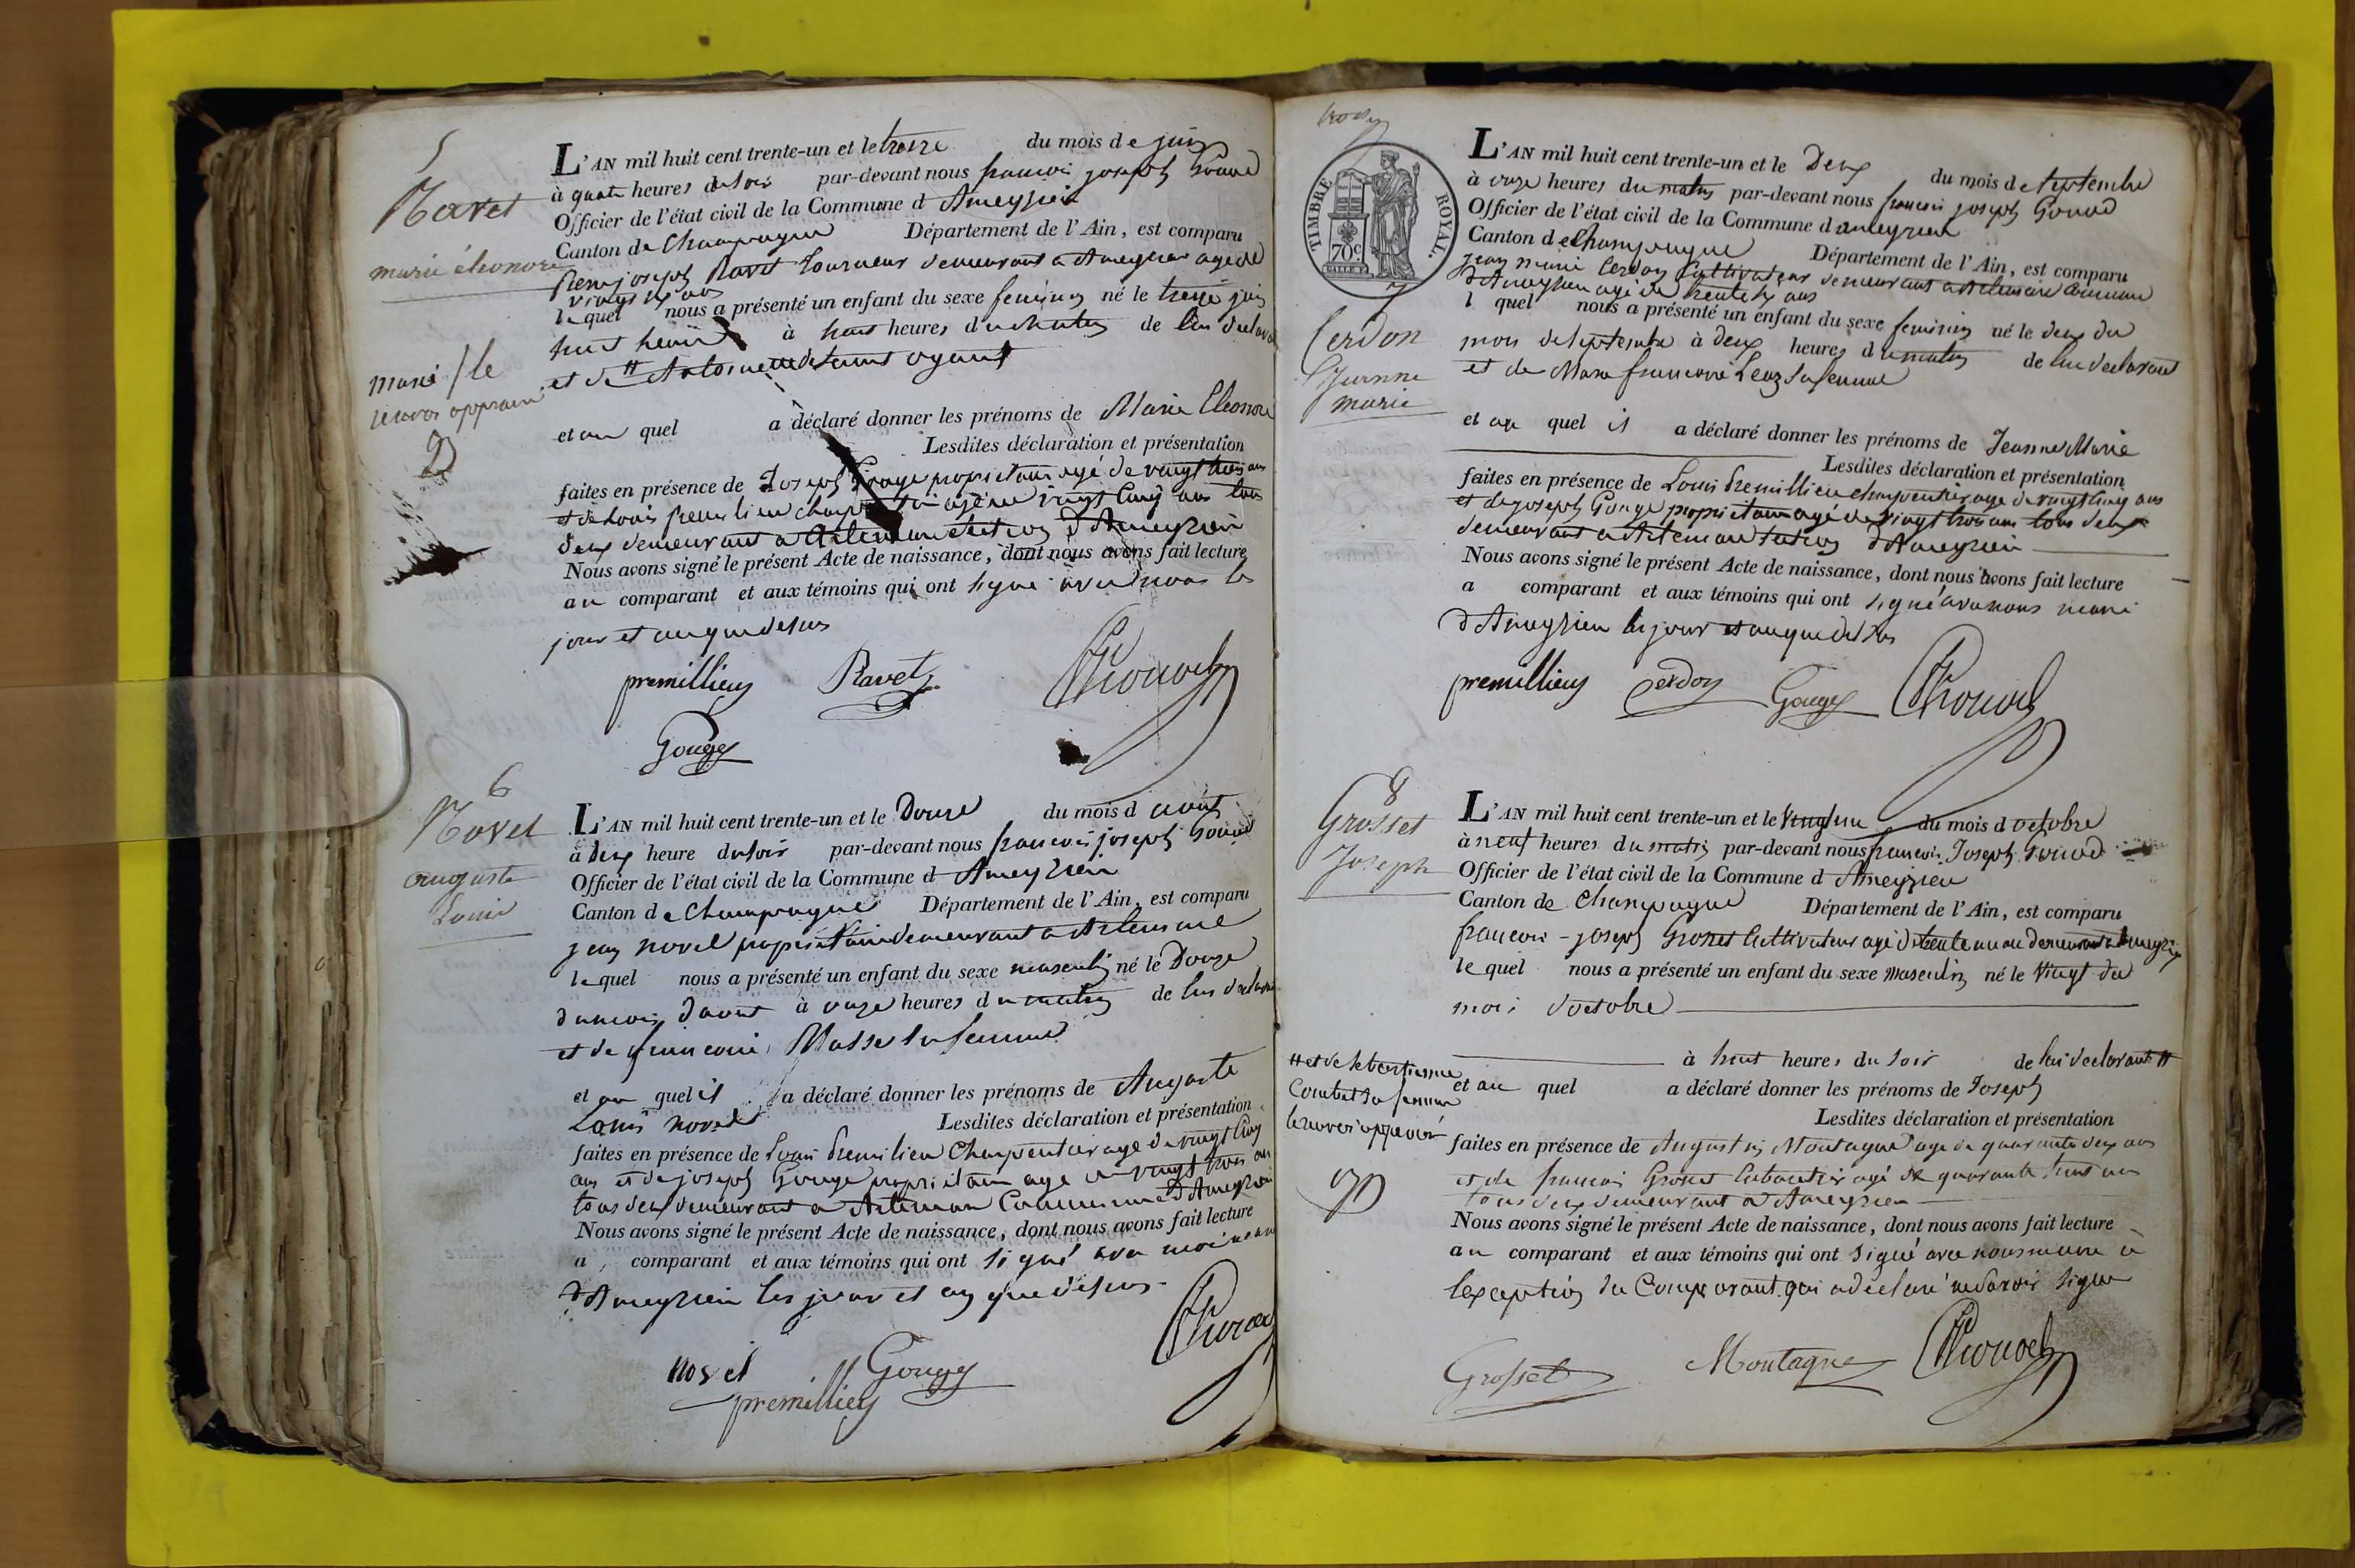 5
Ravet
marie éleonore
L'AN mil huit cent trente-un et le treize du mois de juin
à quatre heures du soir par-devant nous francois joseph Gouod
Officier de l'état civil de la Commune d Ameyzieu
Canton de Champagne Département de l'Ain, est comparu
joseph Ravet tourneur demeurant a Ameyzieu agé de
vingt ans
le quel nous a présenté un enfant du sexe feminin né le treize juin
à huit heures du matin de lui declarant
et de Antoinette
et au quel a déclaré donner les prénoms de Marie Eleonore
Lesdites déclaration et présentation
faites en présence de Joseph Gouge proprietaire agé de vingt trois ans
et de Louis premilieu charpentier agé de vingt cinq ans tous
deux demeurant a Artemare section d'Ameyzieu
Nous avons signé le présent Acte de naissance, dont nous avons fait lecture
au comparant et aux témoins qui ont signé avec nous les
jour et an que dessus
premillieu Ravet Gouod
Gouge
6
Novel
auguste
Louis
L'AN mil huit cent trente-un et le Douze du mois d aout
à deux heure du soir par-devant nous francois joseph Gouod
Officier de l'état civil de la Commune d Ameyzieu
Canton de Champagne Département de l'Ain, est comparu
jean novel proprietaire demeurant a Artemare
le quel nous a présenté un enfant du sexe masculin né le Douze
du mois d'aout à onze heures du matin de lui declarant
et de francoise Masse sa femme
et au quel il a déclaré donner les prénoms de Auguste
Louis novel Lesdites déclaration et présentation
faites en présence de Louis Premilieu Charpentier agé de vingt cinq
ans et de joseph Gouge proprietaire agé de vingt trois ans
tous deux demeurant a Artemare Commune d'Ameyzieu
Nous avons signé le présent Acte de naissance, dont nous avons fait lecture
a comparant et aux témoins qui ont signé avec moi
d'Ameyzieu les jour et an que dessus
novel Gouge Gouod
premillieu
TIMBRE ROYAL.
70c
7
Cerdon
Jeanne
marie
L'AN mil huit cent trente-un et le Deux du mois de Septembre
à onze heures du matin par-devant nous francois joseph Gouod
Officier de l'état civil de la Commune d ameyzieu
Canton de Champagne Département de l'Ain, est comparu
jean marie Cerdon Cultivateur demeurant a Artemare Commune
d'Ameyzieu agé de trente ans
l quel nous a présenté un enfant du sexe feminin né le deux du
mois de septembre à deux heures du matin de lui declarant
et de Marie francoise sa femme
et au quel il a déclaré donner les prénoms de Jeanne Marie
Lesdites déclaration et présentation
faites en présence de Louis Premillieu charpentier agé de vingt cinq ans
et de joseph Gouge proprietaire agé de vingt trois ans tous deux
demeurant a Artemare section d'Ameyzieu
Nous avons signé le présent Acte de naissance, dont nous avons fait lecture
a comparant et aux témoins qui ont signé avec nous maire
d'Ameyzieu les jour et an que dessus
premillieu Cerdon Gouge Gouod
8
Grosset
Joseph
L'AN mil huit cent trente-un et le vingt un du mois d octobre
à neuf heures du matin par-devant nous francois Joseph Gouod
Officier de l'état civil de la Commune d Ameyzieu
Canton de Champagne Département de l'Ain, est comparu
francois-joseph Grosset Cultivateur agé de trente un an demeurant a Ameyzieu
le quel nous a présenté un enfant du sexe masculin né le vingt du
mois d'octobre
à huit heures du soir de lui declarant #
# et de sa femme
et au quel a déclaré donner les prénoms de Joseph
Lesdites déclaration et présentation
faites en présence de Augustin Montagne age de quarante deux ans
et de francois Grosset agé de quarante huit ans
tous deux demeurant a Ameyzieu
Nous avons signé le présent Acte de naissance, dont nous avons fait lecture
au comparant et aux témoins qui ont signé avec nous maire à
lexception du Comparant qui a declaré ne savoir signer
Grosset Montagne Gouod